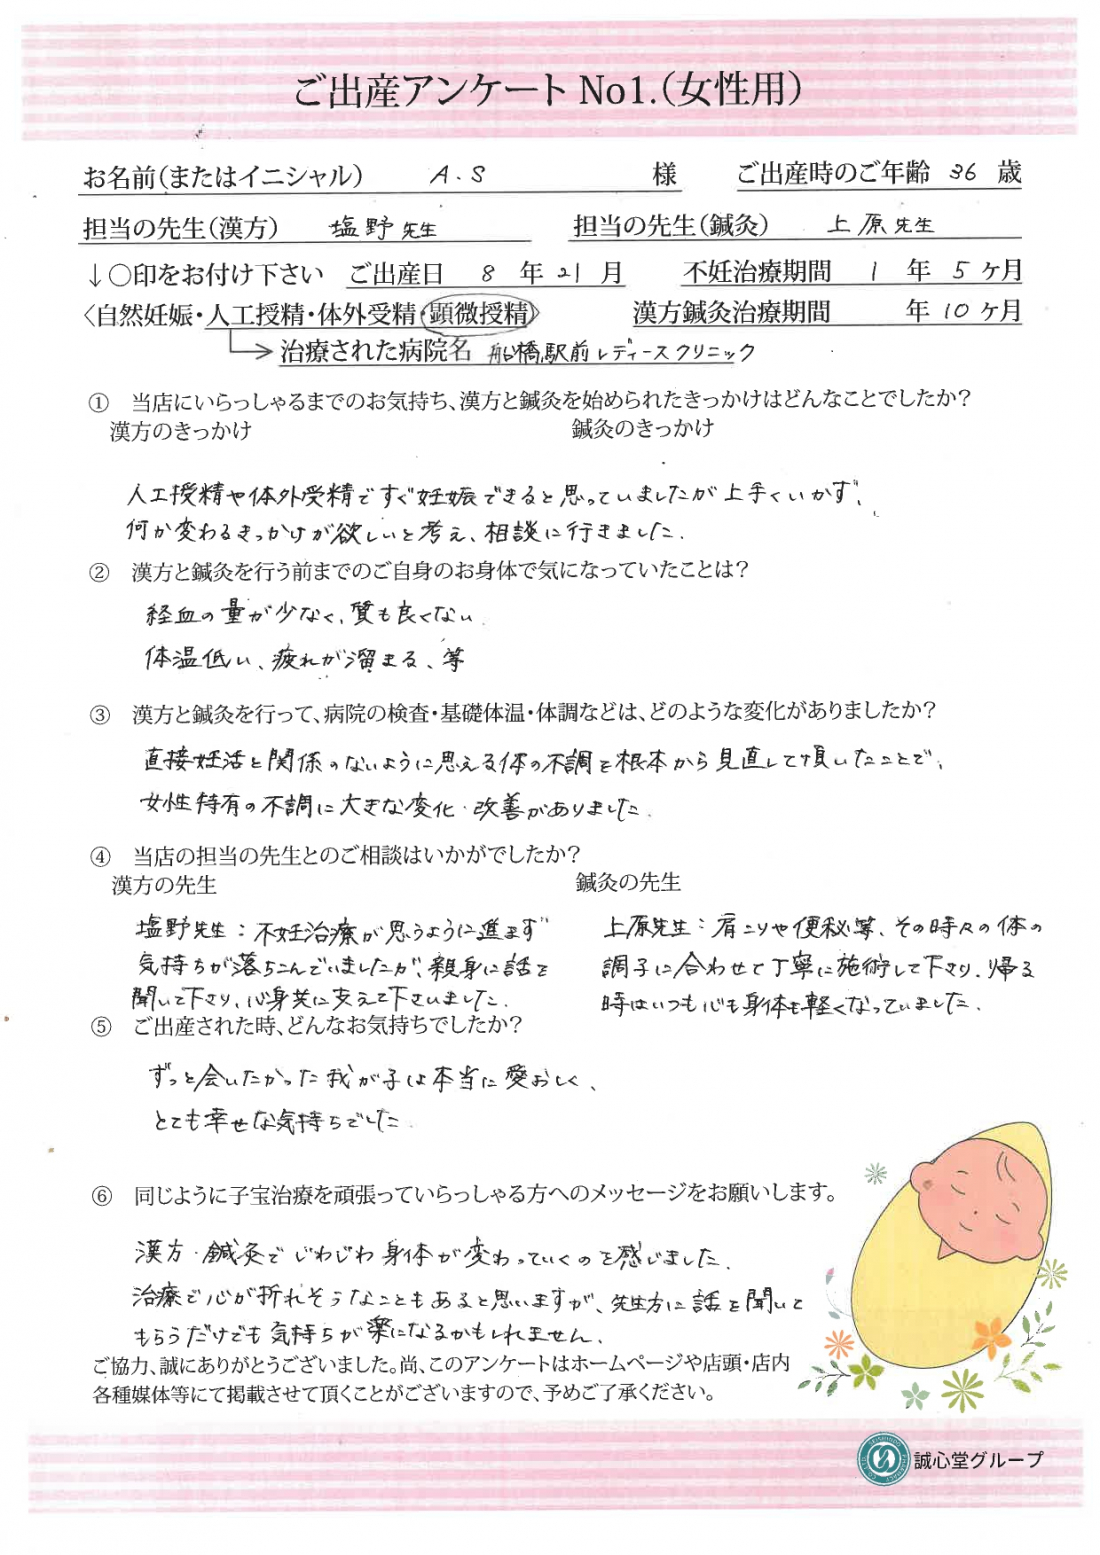 ご出産アンケート No1.(女性用)
お名前(またはイニシャル) A.S 様 ご出産時のご年齢 36 歳
担当の先生(漢方) 塩野先生 担当の先生(鍼灸) 上原先生
↓○印をお付け下さい ご出産日 8 年 21 月 不妊治療期間 1 年 5 ヶ月
〈自然妊娠・人工授精・体外受精・顕微授精〉 漢方鍼灸治療期間 年 10 ヶ月
治療された病院名 船橋駅前レディースクリニック
① 当店にいらっしゃるまでのお気持ち、漢方と鍼灸を始められたきっかけはどんなことでしたか?
漢方のきっかけ 鍼灸のきっかけ
人工授精や体外受精ですぐ妊娠できると思っていましたが上手くいかず、
何か変わるきっかけが欲しいと考え、相談に行きました.
② 漢方と鍼灸を行う前までのご自身のお身体で気になっていたことは?
経血の量が少なく、質も良くない.
体温低い、疲れが溜まる、等
③ 漢方と鍼灸を行って、病院の検査・基礎体温・体調などは、どのような変化がありましたか?
直接妊活と関係のないように思える体の不調を根本から見直して頂いたことで、
女性特有の不調に大きな変化・改善がありました.
④ 当店の担当の先生とのご相談はいかがでしたか?
漢方の先生 鍼灸の先生
塩野先生:不妊治療が思うように進まず
気持ちが落ちこんでいましたが、親身に話を
聞いて下さり、心身共に支えて下さいました.
上原先生:肩こりや便秘等、その時々の体の
調子に合わせて丁寧に施術して下さり、帰る
時はいつも心も身体も軽くなっていました.
⑤ ご出産された時、どんなお気持ちでしたか?
ずっと会いたかった我が子は本当に愛おしく、
とても幸せな気持ちでした.
⑥ 同じように子宝治療を頑張っていらっしゃる方へのメッセージをお願いします。
漢方・鍼灸でじわじわ身体が変わっていくのを感じました.
治療で心が折れそうなこともあると思いますが、先生方に話を聞いて
もらうだけでも気持ちが楽になるかもしれません.
ご協力、誠にありがとうございました。尚、このアンケートはホームページや店頭・店内
各種媒体等にて掲載させて頂くことがございますので、予めご了承ください。
誠心堂グループ